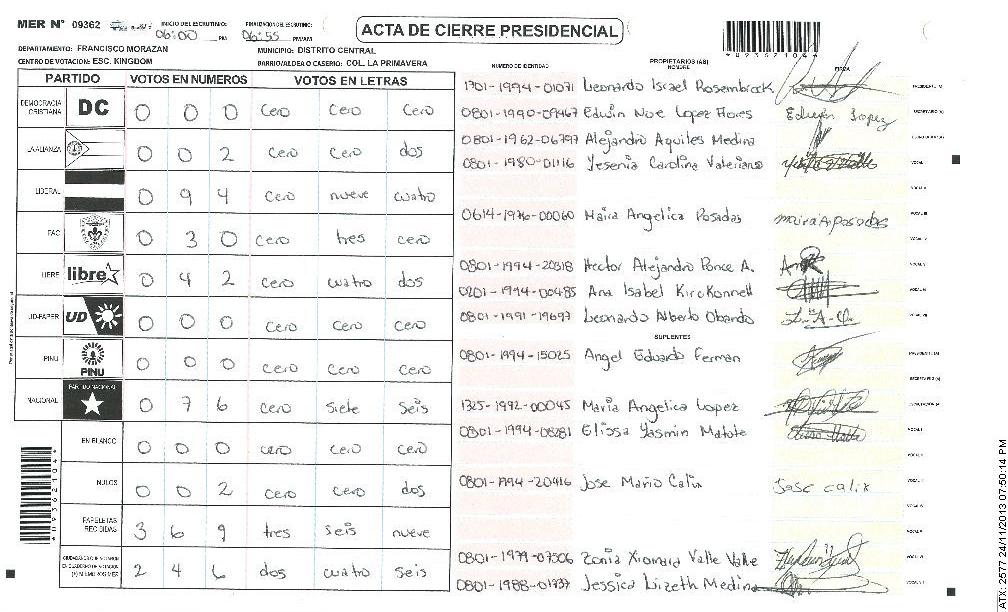 MER N° 09362
INICIO DEL ESCRUTINIO: 06:00 PM
FINALIZACION DEL ESCRUTINIO: 06:55 PM/AM
ACTA DE CIERRE PRESIDENCIAL
*09362104*
DEPARTAMENTO: FRANCISCO MORAZAN
MUNICIPIO: DISTRITO CENTRAL
CENTRO DE VOTACION: ESC. KINGDOM
BARRIO/ALDEA O CASERIO: COL. LA PRIMAVERA
PARTIDO VOTOS EN NUMEROS VOTOS EN LETRAS
DEMOCRACIA CRISTIANA DC 0 0 0 cero cero cero
LA ALIANZA 0 0 2 cero cero dos
LIBERAL 0 9 4 cero nueve cuatro
PAC 0 3 0 cero tres cero
LIBRE libre 0 4 2 cero cuatro dos
UD-FAPER UD 0 0 0 cero cero cero
PINU PINU 0 0 0 cero cero cero
NACIONAL PARTIDO NACIONAL 0 7 6 cero siete seis
EN BLANCO 0 0 0 cero cero cero
NULOS 0 0 2 cero cero dos
PAPELETAS RECIBIDAS 3 6 9 tres seis nueve
CIUDADANOS QUE VOTARON EN CUADERNO DE VOTACION (+) MIEMBROS MER 2 4 6 dos cuatro seis
NUMERO DE IDENTIDAD
PROPIETARIOS (AS)
NOMBRE
FIRMA
1701-1994-01071 Leonardo Israel Rosembrock
0801-1990-09467 Edwin Noe Lopez Flores Edwin Lopez
0801-1962-06797 Alejandro Aquiles Medina
0801-1980-01116 Yesenia Carolina Valeriano
0614-1976-00060 Maira Angelica Posadas maira A posadas
0801-1994-20318 Hector Alejandro Ponce A.
0201-1994-00485 Ana Isabel Kirckonnell
0801-1991-19697 Leonardo Alberto Obando
SUPLENTES
0801-1994-15025 Angel Eduardo Ferman
1325-1992-00045 Maria Angelica Lopez
0801-1994-08281 Elissa Yasmin Matote
0801-1994-20416 Jose Mario Calix Jose calix
0801-1979-07506 Zonia Xiomara Valle Valle
0801-1988-01737 Jessica Lizeth Medina
*09362104*
ATX: 2577 24/11/2013 07:50:14 PM